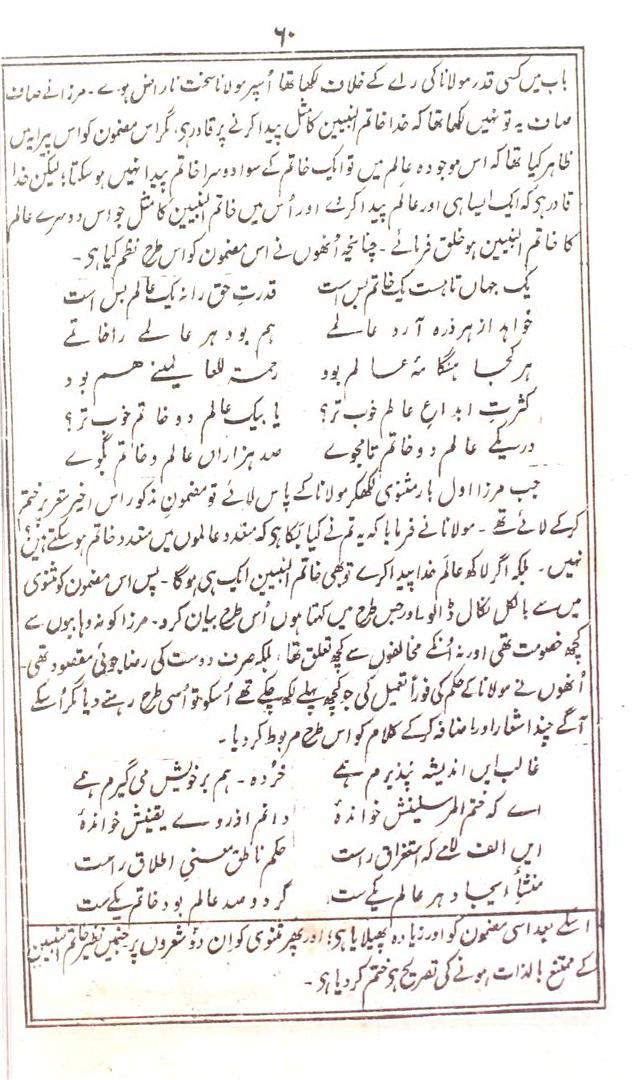 ۶۰
باب میں کسی قدر مولانا کی راے کے خلاف لکھا تھا اُسپر مولانا سخت ناراض ہوے ۔ مرزا نے صاف
صاف یہ تو نہیں لکھا تھا کہ خدا خاتم النبیین کا مثل پیدا کرنے پر قادر ہی، مگر اس مضمون کو اس پیرایہ میں
ظاہر کیا تھا کہ اس موجودہ عالم میں تو ایک خاتم کے سوا دوسرا خاتم پیدا نہیں ہو سکتا؛ لیکن خدا
قادر ہی کہ ایک ایسا ہی اور عالَم پیدا کرے اور اُس میں خاتم النبیین کا مثل جو اس دوسرے عالم
کا خاتم النبیین ہو خلق فرمائے ۔ چنانچہ اُنھوں نے اس مضمون کو اس طرح نظم کیا ہی ۔
یک جہاں تا ہست یک خاتم بس است قدرتِ حق را نہ یک عالم بس است
خواہد از ہر ذرہ آرد عالمے ہم بود ہر عالمے را خاتمے
ہر کجا ہنگامۂ عالم بود رحمۃ للعالمینے ہم بود
کثرتِ ابداعِ عالم خوب تر؟ یا بیک عالم دو خاتم خوب تر؟
در یکے عالم دو خاتم تا مجوے صد ہزاراں عالم و خاتم بگوے
جب مرزا اول بار مثنوی لکھکر مولانا کے پاس لائے تو مضمون مذکور اس اخیر شعر پر ختم
کر کے لائے تھے ۔ مولانا نے فرمایا کہ یہ تم نے کیا بکا ہی کہ متعدد عالموں میں متعدد خاتم ہو سکتے ہیں؟
نہیں ۔ بلکہ اگر لاکھ عالم خدا پیدا کرے تو بھی خاتم النبیین ایک ہی ہوگا ۔ پس اس مضمون کو مثنوی
میں سے بالکل نکال ڈالو اور جس طرح میں کہتا ہوں اُس طرح بیان کرو ۔ مرزا کو نہ وہابیوں سے
کچھ خصومت تھی اور نہ اُنکے مخالفوں سے کچھ تعلق تھا، بلکہ صرف دوست کی رضا جوئی مقصود تھی ۔
اُنھوں نے مولانا کے حکم کی فوراً تعمیل کی جو کچھ پہلے لکھ چکے تھے اُسکو تو اُسی طرح رہنے دیا مگر اُسکے
آگے چند اشعار اور اضافہ کر کے کلام کو اس طرح مربوط کر دیا ۔
غالب ایں اندیشہ نپذیرم ہمے خردہ ۔ ہم بر خویش می گیرم ہمے
اے کہ ختم المرسلینش خواندۂ دانم از روے یقینش خواندۂ
ایں الف لامے کہ استغراق راست حکم ناطق معنیِ اطلاق راست
منشأِ ایجادِ ہر عالم یکے ست گر دو صد عالم بود خاتم یکے ست
اسکے بعد اسی مضمون کو اور زیادہ پھیلایا ہی؛ اور پھر مثنوی کو اِن دو شعروں پر جنمیں نظیر خاتم النبیین
کے ممتنع بالذات ہونے کی تصریح ہی ختم کر دیا ہی ۔